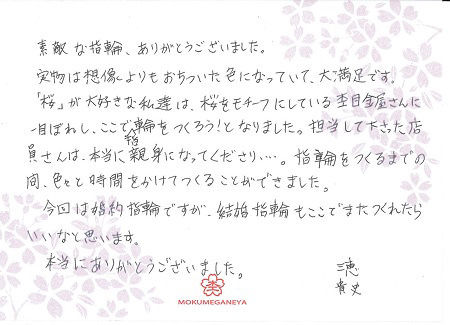 素敵な指輪、ありがとうございました。
実物は想像よりもおちついた色になっていて、大満足です。
「桜」が大好きな私達は、桜をモチーフにしている杢目金屋さんに
一目ぼれし、ここで指輪をつくろう!となりました。担当して下さった店
員さんは、本当に親身になってくださり…。指輪をつくるまでの
間、色々と時間をかけてつくることができました。
今回は婚約指輪ですが、結婚指輪もここでまたつくれたら
いいなと思います。
本当にありがとうございました。
恵
貴史
杢
MOKUMEGANEYA